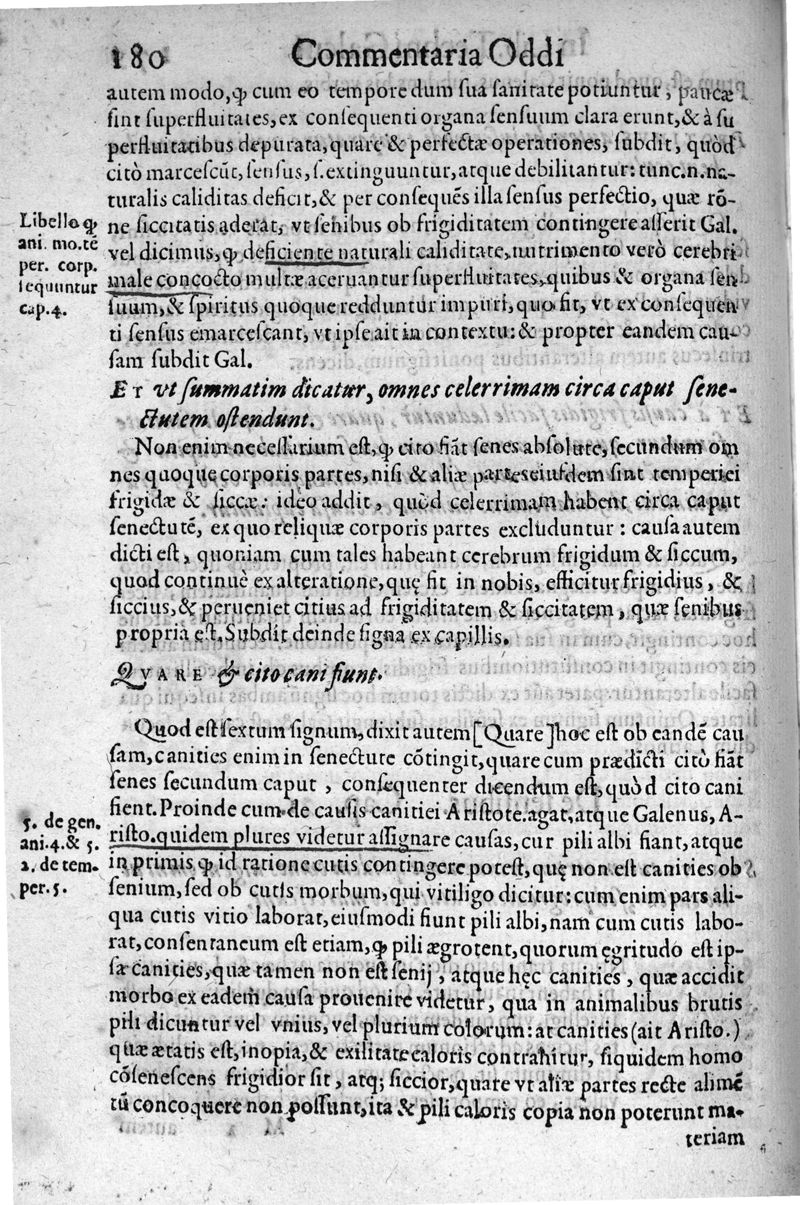 180 Commentaria Oddi
autem modo, ꝙ cum eo tempore dum sua sanitate potiuntur, paucæ
sint superfluitates, ex consequenti organa sensuum clara erunt, & à su
perfluitatibus depurata, quare & perfectæ operationes, subdit, quòd
citò marcescūt, sensus, s. extinguuntur, atque debilitantur: tunc. n. na-
turalis caliditas deficit, & per consequēs illa sensus perfectio, quæ rō-
ne siccitatis aderat, vt senibus ob frigiditatem contingere asserit Gal.
vel dicimus, ꝙ deficiente naturali caliditate, nutrimento verò cerebri
male concocto multæ aceruantur superfluitates, quibus & organa sen
suum, & spiritus quoque redduntur impuri, quo fit, vt ex consequen
ti sensus emarcescant, vt ipse ait in contextu: & propter eandem cau-
sam subdit Gal.
Libello ꝙ
ani. mo. tē
per. corp.
sequuntur
cap. 4.
ET vt summatim dicatur, omnes celerrimam circa caput sene-
ctutem ostendunt.
Non enim necessarium est, ꝙ cito fiāt senes absolute, secundum om
nes quoque corporis partes, nisi & aliæ partes eiusdem sint temperiei
frigidæ & siccæ: ideo addit, quòd celerrimam habent circa caput
senectutē, ex quo reliquæ corporis partes excluduntur: causa autem
dicti est, quoniam cum tales habeant cerebrum frigidum & siccum,
quod continuè ex alteratione, quę fit in nobis, efficitur frigidius, &
siccius, & perueniet citius ad frigiditatem & siccitatem, quæ senibus
propria est. Subdit deinde signa ex capillis.
QVARE & cito cani fiunt.
Quod est sextum signum, dixit autem [Quare] hoc est ob eandē cau
sam, canities enim in senectute cōtingit, quare cum prædicti citò fiāt
senes secundum caput, consequenter dicendum est, quòd cito cani
fient. Proinde cum de causis canitiei Aristote. agat, atque Galenus, A-
risto. quidem plures videtur assignare causas, cur pili albi fiant, atque
in primis ꝙ id ratione cutis contingere potest, quę non est canities ob
senium, sed ob cutis morbum, qui vitiligo dicitur: cum enim pars ali-
qua cutis vitio laborat, eiusmodi fiunt pili albi, nam cum cutis labo-
rat, consentaneum est etiam, ꝙ pili ægrotent, quorum ęgritudo est ip-
sa canities, quæ tamen non est senij, atque hęc canities, quæ accidit
morbo ex eadem causa prouenire videtur, qua in animalibus brutis
pili dicuntur vel vnius, vel plurium colorum: at canities (ait Aristo.)
quæ ætatis est, inopia, & exilitate caloris contrahitur, siquidem homo
cōsenescens frigidior fit, atq; siccior, quare vt aliæ partes recte alimē
tū concoquere non possunt, ita & pili caloris copia non poterunt ma-
5. de gen.
ani. 4. & 5.
2. de tem-
per. 5.
teriam